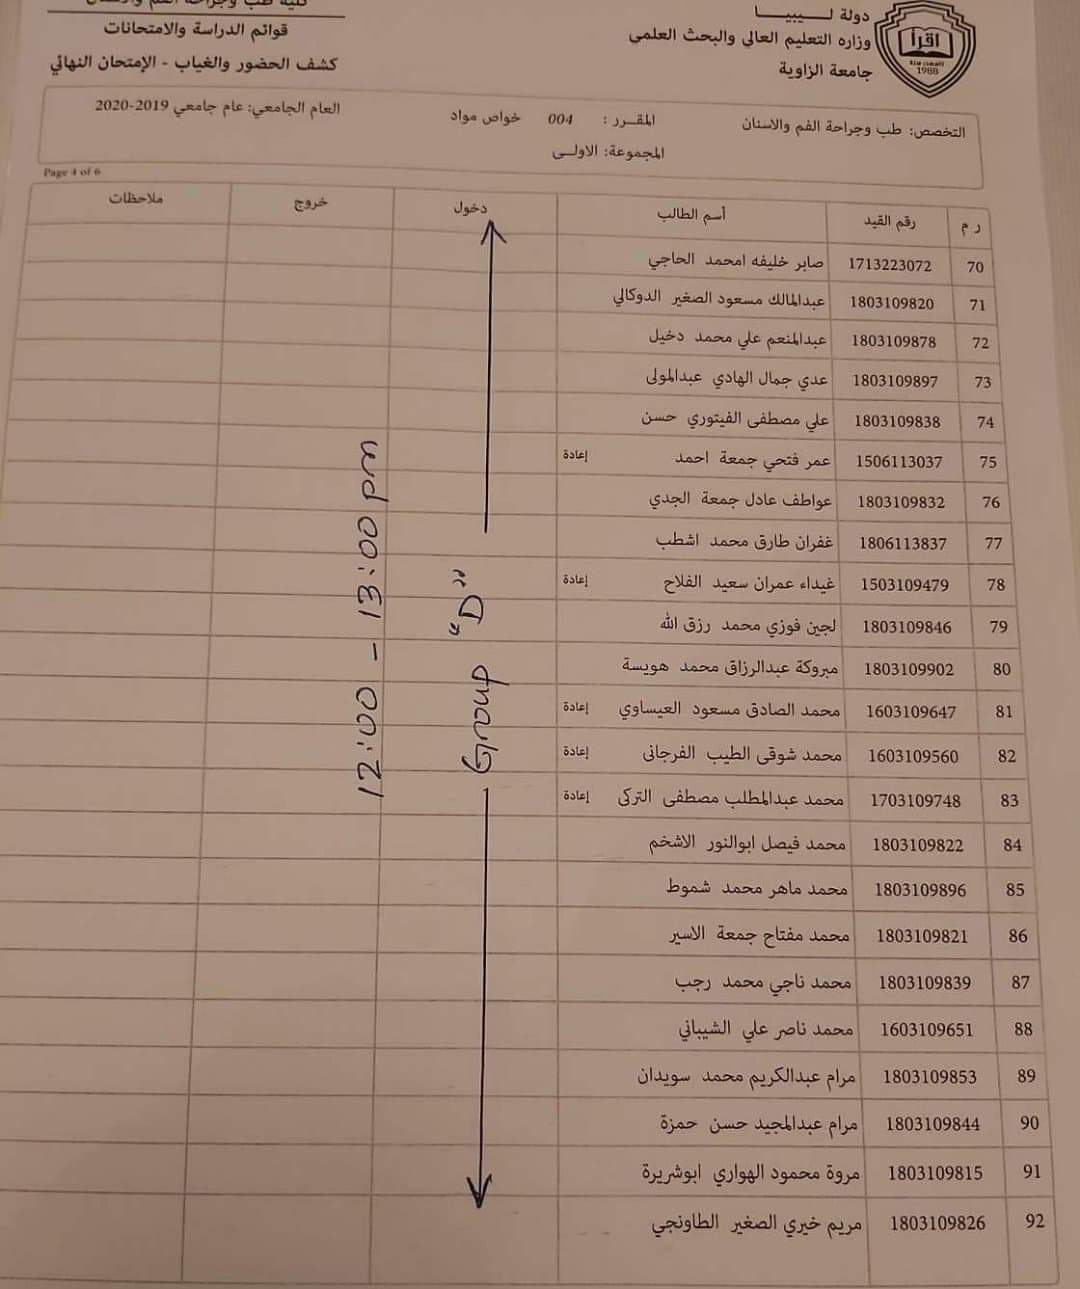 دولة ليبيا
وزاره التعليم العالي والبحث العلمى
جامعة الزاوية
اقرأ
1988
كلية طب وجراحة الفم والاسنان
قوائم الدراسة والامتحانات
كشف الحضور والغياب - الإمتحان النهائي
التخصص: طب وجراحة الفم والاسنان المقرر : 004 خواص مواد العام الجامعي: عام جامعي 2019-2020
المجموعة: الاولى
Page 4 of 6
ر م رقم القيد أسم الطالب دخول خروج ملاحظات
70 1713223072 صابر خليفه امحمد الحاجي
71 1803109820 عبدالمالك مسعود الصغير الدوكالي
72 1803109878 عبدالمنعم علي محمد دخيل
73 1803109897 عدي جمال الهادي عبدالمولى
74 1803109838 علي مصطفى الفيتوري حسن
75 1506113037 عمر فتحي جمعة احمد إعادة
76 1803109832 عواطف عادل جمعة الجدي
77 1806113837 غفران طارق محمد اشطب
78 1503109479 غيداء عمران سعيد الفلاح إعادة
79 1803109846 لجين فوزي محمد رزق الله
80 1803109902 مبروكة عبدالرزاق محمد هويسة
81 1603109647 محمد الصادق مسعود العيساوي إعادة
82 1603109560 محمد شوقى الطيب الفرجانى إعادة
83 1703109748 محمد عبدالمطلب مصطفى التركى إعادة
84 1803109822 محمد فيصل ابوالنور الاشخم
85 1803109896 محمد ماهر محمد شموط
86 1803109821 محمد مفتاح جمعة الاسير
87 1803109839 محمد ناجي محمد رجب
88 1603109651 محمد ناصر علي الشيباني
89 1803109853 مرام عبدالكريم محمد سويدان
90 1803109844 مرام عبدالمجيد حسن حمزة
91 1803109815 مروة محمود الهواري ابوشريرة
92 1803109826 مريم خيري الصغير الطاونجي
Group "D"
12:00 - 13:00 pm